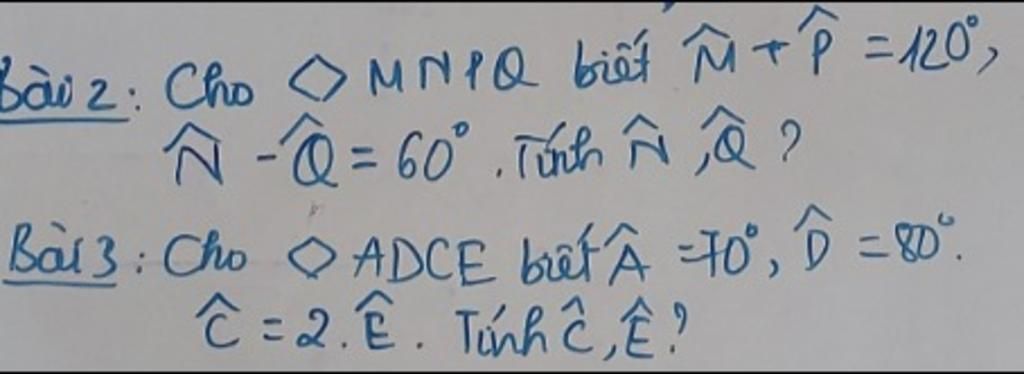 Bài 2: Cho ◇ MNPQ biết M̂ + P̂ = 120°,
N̂ - Q̂ = 60°. Tính N̂, Q̂ ?
Bài 3: Cho ◇ ADCE biết Â = 70°, D̂ = 80°.
Ĉ = 2. Ê. Tính Ĉ, Ê?